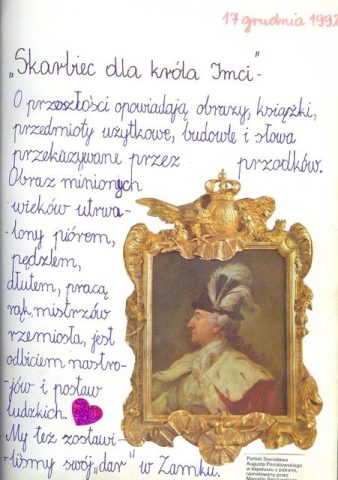 17 grudnia 1992
„Skarbiec dla króla Imci"-
O przeszłości opowiadają obrazy, książki,
przedmioty użytkowe, budowle i słowa
przekazywane przez przodków.
Obraz minionych
wieków utrwa-
lony piórem,
pędzlem,
dłutem, pracą
rąk mistrzów
rzemiosła, jest
odbiciem nastro-
jów i postaw
ludzkich.
My też zostawi-
liśmy swój „dar" w Zamku.
Portret Stanisława
Augusta Poniatowskiego
w kapeluszu z piórami,
namalowany przez